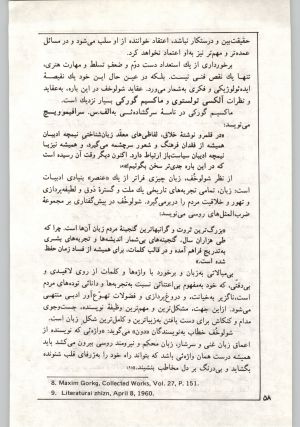 حقیقت‌بین و درستکار نباشد، اعتقاد خواننده از او سلب می‌شود و در مسائل
عمده‌تر و مهم‌تر نیز به‌او اعتماد نخواهد کرد.
برخورداری از یک استعداد دست دوّم و ضعف تسلط و مهارت هنری،
تنها یك نقص فنی نیست. بلکه در عین حال این خود یك نقیصۀ
ایدئولوژیکی و فکری به‌شمار می‌ورد. عقاید شولوخف در این باره، به‌عقاید
و نظرات آلکسی تولستوی و ماکسیم گورکی بسیار نزدیك است.
ماکسیم گورکی در نامۀ سرگشاده‌ئی به‌الف.س. سرافیموویچ
می‌نویسد:
«در قلمرو نوشتۀ خلاق، لفاظی‌های معلّد زبان‌شناختی نیمچه ادیبان
همیشه از فقدان فرهنگ و شعور سرچشمه می‌گیرد، و همیشه نیز با
نیمچه ادیبان سیاست‌باز ارتباط دارد. اکنون دیگر وقت آن رسیده است
که در این باره جدی‌تر سخن بگوئیم»(۸)
از نظر شولوخف، زبان چیزی فراتر از یک «عنصر» بنیادی ادبیات
است: زبان، تمامی تجربه‌های تاریخی یك ملت و گسترۀ ذوق و لطیفه‌پردازی
و تهور و خلاقیت مردم را دربرمی‌گیرد. شولوخف در پیش‌گفتاری بر مجموعۀ
ضرب‌المثل‌های روسی می‌نویسد:
«بزرگ‌ترین ثروت و گرانبهاترین گنجینۀ مردم زبان آن‌ها است. چرا که
طی هزاران سال، گنجینه‌های بی‌شمار اندیشه‌ها و تجربه‌های بشری
به‌تدریج فراهم آمده و در قالب کلمات، برای همیشه از فساد زمان حفظ
شده است.»
بی‌مبالاتی به‌زبان و برخورد با واژه‌ها و کلمات از روی لاقیدی و
بی‌دقتی، که خود به‌مفهوم بی‌اعتنائی نسبت به‌تجربه‌ها و دانائی توده‌های مردم
است، ناگزیر به‌خیانت، و دروغ‌پردازی و فضولات تهوّع‌آور ادبی منتهی
می‌شود. ازاین جهت، مشکل‌ترین و مهم‌ترین وظیفۀ نویسنده، جست‌وجوی
مدام و کنکاش برای دست یافتن به‌زیباترین و کامل‌ترین شکل زبان است.
شولوخف خطاب به‌نویسندگان «دون» می‌گوید: «واژه‌ئی که نویسنده از
اعماق زبان غنی و سرشار، زبان محکم و نیرومند روسی بیرون می‌کشد باید
همیشه درست همان واژه‌ئی باشد که بتواند راه خود را به‌ژرفای قلب شنونده
بگشاید و بی‌درنگ بر دل مخاطب بنشیند.»(۹)
8. Maxim Gorkg, Collected Works, Vol. 27, P. 151.
9. Literaturai zhizn, April 8, 1960.
۵۸